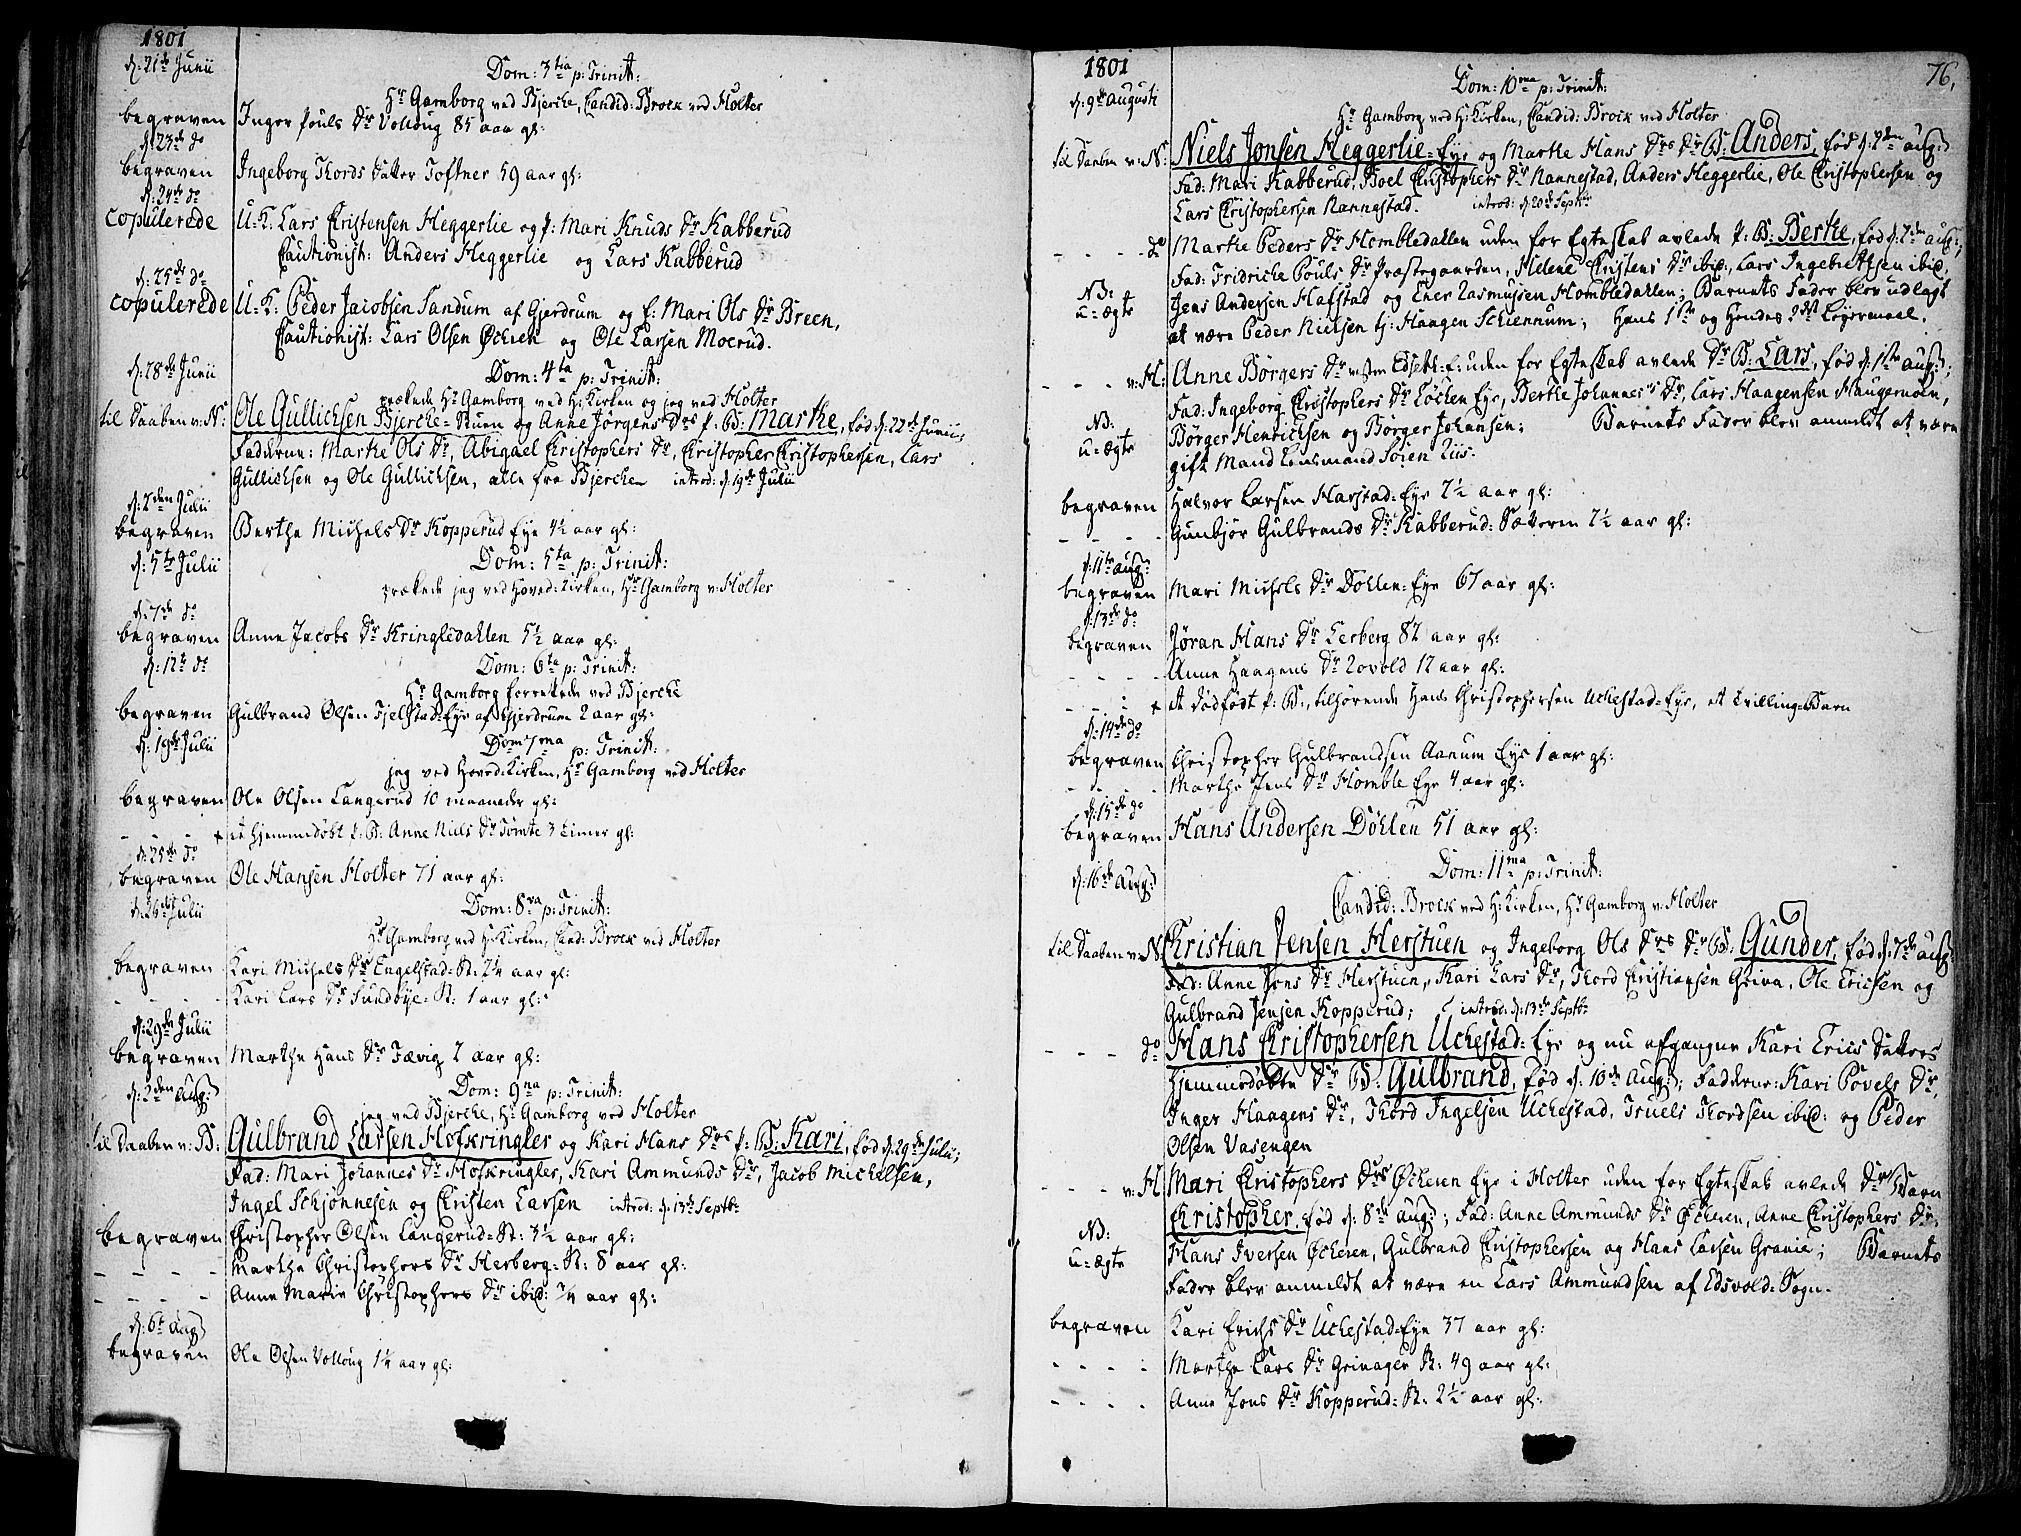 1801
d: 21de Junii
Dom: 3tia p: Trinit:
Hr Gamborg ved Bjerche, Candid: Brock ved Holter
begraven Inger Pouls Dr Vollóug 85 aar gl:
d: 23de do
begraven Ingeborg Thords Datter Toftner 59 aar gl:
d: 24de do
copulerede U: K: Lars Christensen Heggerlie og p: Mari Knuds Dr Kabberud
Cautionist: Anders Heggerlie og Lars Kabberud
d: 25de do
copulerede U: K: Peder Jacobsen Sandum af Gjerdrum og p: Mari Ols Dr Breen,
Cautionist: Lars Olsen Øchern og Ole Larsen Moerud.
d: 28de Junii
Dom: 4ta p: Trinit:
prækede Hr Gamborg ved H: Kirken og jeg ved Holter
til Daaben v: N: Ole Gullichsen Bjerche-Stuen og Anne Jørgens Drs p: B: Marthe, fød d: 22de Junii;
Fadderne: Marthe Ols Dr, Abigael Christophers Dr, Christopher Christophersen, Lars
Gullichsen og Ole Gullichsen, alle fra Bjerche introd: d: 19de Julii
d: 2den Julii
begraven Berthe Michels Dr Kopperud Eye 4½ aar gl:
d: 5te Julii
Dom: 5ta p: Trinit:
prækede jeg ved Hoved-Kirken, Hr Gamborg v: Holter
d: 7de do
begraven Anne Jacobs Dr Kringledahlen 5½ aar gl:
d: 12te do
Dom: 6ta p: Trinit:
Hr Gamborg forrettede ved Bjerche
begraven Gulbrand Olsen Fjelstad-Eye af Gjerdrum 2 aar gl:
d: 19de Julii
Dom: 7ma p: Trinit:
jeg ved Hoved-Kirken, Hr Gamborg ved Holter
begraven Ole Olsen Langerud 10 maaneder gl:
- - - et hjemmedøbt p: B: Anne Niels Dr Tømte 3 timer gl:
d: 25de do
begraven Ole Hansen Holter 71 aar gl:
d: 26de Julii
Dom: 8va p: Trinit:
Hr Gamborg ved H: Kirken, Cand: Brock ved Holter
begraven Kari Michels Dr Engelstad-St: 2¼ aar gl:
- - - - Kari Lars Dr Sundbye-St: 1 aar gl:
d: 29de Julii
begraven Marthe Hans Dr Fævig 2 aar gl:
d: 2den Aug:
Dom: 9na p: Trinit:
jeg ved Bjerche, Hr Gamborg ved Holter
til Daaben v: B: Gulbrand Larsen Hofkringler og Kari Hans Drs p: B: Kari, fød d: 29de Julii;
Fad: Mari Johannes Dr Hofkringler, Kari Ammunds Dr, Jacob Michelsen,
Ingel Schjønnesen og Christen Larsen introd: d: 13de Septbr
begraven Christopher Olsen Langerud-St: 3½ aar gl:
- - - - Marthe Christophers Dr Herberg-St: 8 aar gl:
- - - - Anne Marie Christophers Dr ibid: ¾ aar gl:
d: 6te Aug:
begraven Ole Olsen Vollóug 1¼ aar gl:
1801
76,
d: 9de Augusti
Dom: 10ma p: Trinit:
Hr Gamborg ved H: Kirken, Candid: Brock ved Holter
til Daaben v: N: Niels Jonsen Heggerlie-Eye og Marthe Hans Drs Dr B: Anders, fød d: 2den Aug:
Fad: Mari Kabberud, Boel Christophers Dr Nannestad, Anders Heggerlie, Ole Christophersen og
Lars Christophersen Nannestad. introd: d: 20de Septbr
- - - - do Marthe Peders Dr Hombledahlen uden for Egteskab avlede p: B: Berthe, fød d: 2den Aug:;
Fad: Fridriche Pouls Dr Præstegaarden, Helene Christens Dr ibid:, Lars Ingebrethsen ibid:,
NB: Jens Andersen Hafstad og Ener Rasmusen Hombledahlen; Barnets Fader blev udlagt
u-ægte at være Peder Nielsen tj: Haagen Schiennum; Hans 1ste og Hendes 2det Legermaal.
- - - v: H: Anne Børgers Dr uden for Egteskab avlede Dr B: Lars, fød d: 1ste Aug:;
Fad: Ingeborg Christophers Dr Løchen Eye, Berthe Johannes's Dr, Lars Haagensen Haugermoen,
NB: Børger Henrichsen og Børger Johansen; Barnets Fader blev anmeldt at være
u-ægte gift Mand Lensmand Søren Riis.
begraven Halvor Larsen Harstad-Eye 2½ aar gl:
- - - - Gunbjør Gulbrands Dr Kabberud-Sæteren 7½ aar gl:
d: 11te Aug:
begraven Mari Michels Dr Døhlen-Eye 67 aar gl:
d: 13de do
begraven Jøran Hans Dr Lerberg 82 aar gl:
- - - - Anne Haagens Dr Rovold 12 aar gl:
- - - - et dødfødt p: B:, tilhørende Hans Christophersen Uchestad-Eye, et Tvilling-Barn
d: 14de do
begraven Christopher Gulbrandsen Aanum Eye 1 aar gl:
- - - - Marthe Jens Dr Homble Eye 4 aar gl:
d: 15de do
begraven Hans Andersen Døhlen 51 aar gl:
d: 16de Aug:
Dom: 11ma p: Trinit:
Candid: Brock ved H: Kirken, Hr Gamborg v: Holter
til Daaben v: N: Christian Jensen Herstuen og Ingeborg Ols Drs Dr B: Gunder, fød d: 7de Aug:
Fad: Anne Jons Dr Herstuen, Kari Lars Dr, Thord Christiansen Griva, Ole Erichsen og
Gulbrand Jensen Kopperud; introd: d: 13de Septbr
- - - do Hans Christophersen Uchestad-Eye og nu afgangne Kari Erics Datters
hjemmedøbte Dr B: Gulbrand, fød d: 10de Aug:; Fadderne: Kari Povels Dr,
Inger Haagens Dr, Thord Ingelsen Uchestad, Truels Thordsen ibid: og Peder
Olsen Vasengen
- - - v: H: Mari Christophers Drs Øcheren Eye i Holter uden for Egteskab avlede Dr Barn
Christopher, fød d: 8de Aug:; Fad: Anne Ammunds Dr Øcheren, Anne Christophers Dr,
NB: Hans Iversen Øcheren, Gulbrand Christophersen og Hans Larsen Granie; Barnets
u-ægte Fader blev anmeldt at være en Lars Ammundsen af Edsvold-Sogn.
begraven Kari Erichs Dr Uchestad-Eye 37 aar gl:
- - - - Marthe Lars Dr Grinager St: 49 aar gl:
- - - - Anne Jons Dr Kopperud-St: 2½ aar gl: